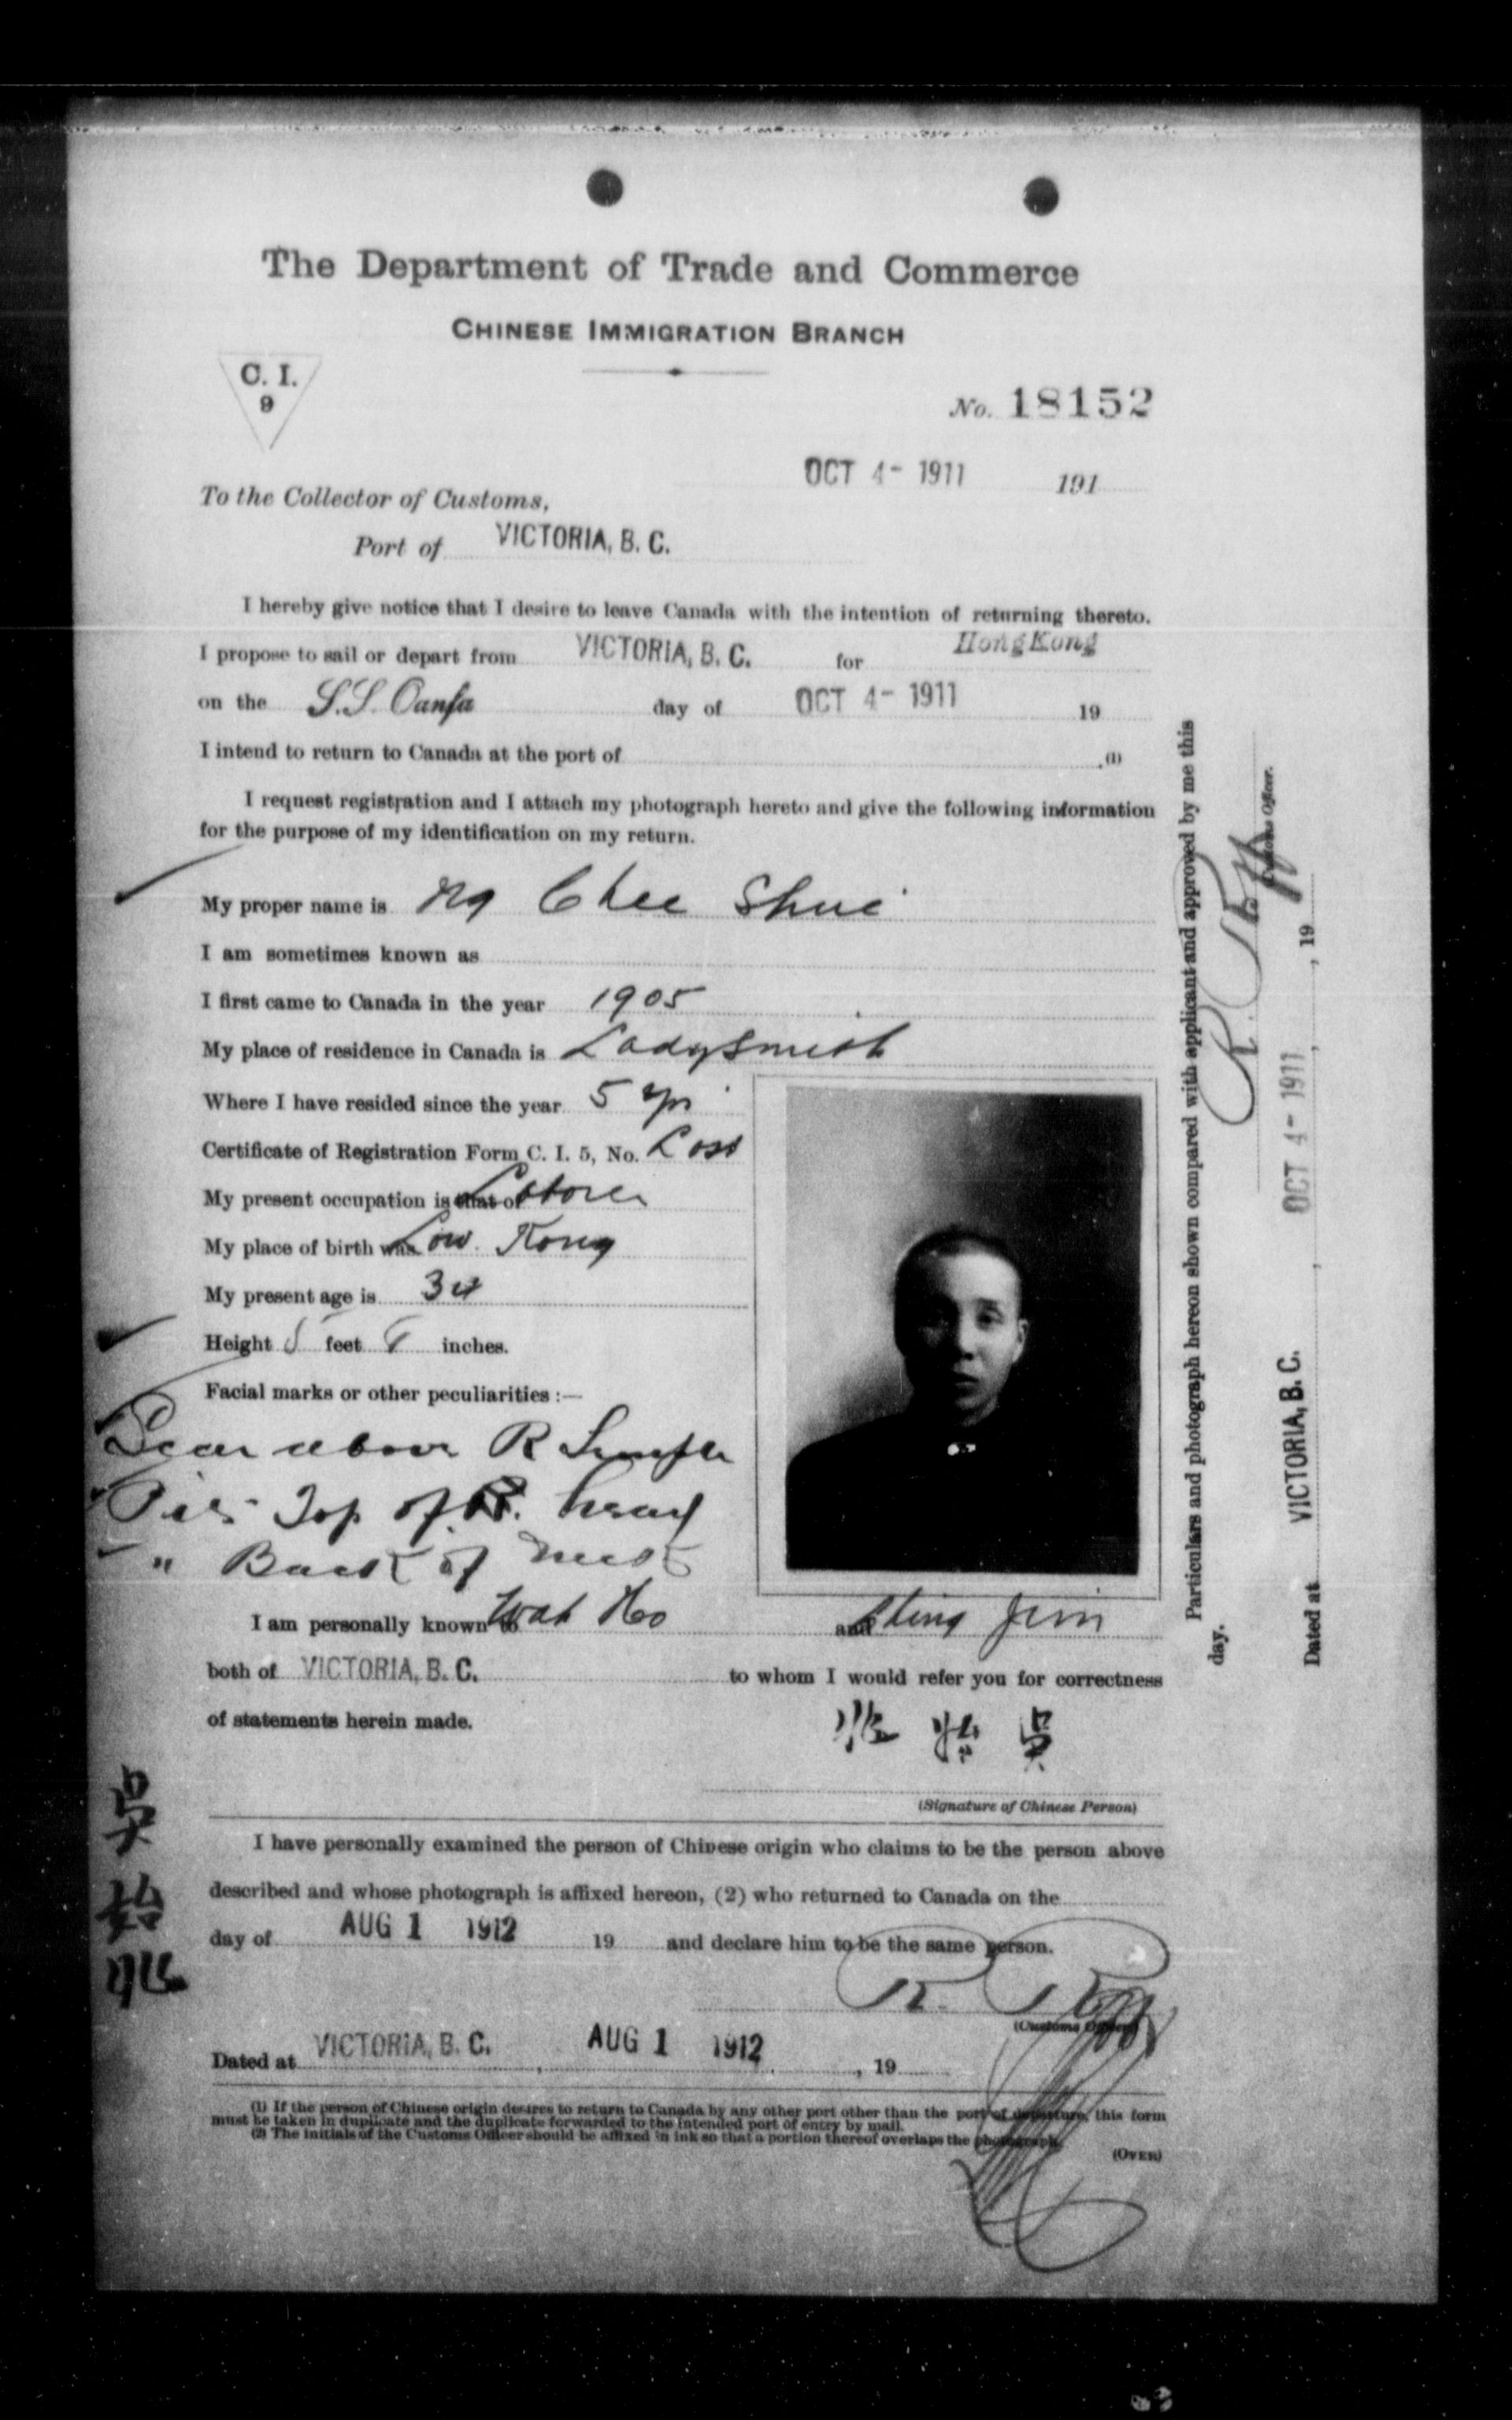 The Department of Trade and Commerce
CHINESE IMMIGRATION BRANCH
C. I.
9
No. 18152
OCT 4- 1911 191
To the Collector of Customs,
Port of VICTORIA, B. C.
I hereby give notice that I desire to leave Canada with the intention of returning thereto.
I propose to sail or depart from VICTORIA, B. C. for HongKong
on the S.S. Oanfa day of OCT 4- 1911 19
I intend to return to Canada at the port of .(1)
I request registration and I attach my photograph hereto and give the following information
for the purpose of my identification on my return.
My proper name is Ng Chee Shue
I am sometimes known as
I first came to Canada in the year 1905
My place of residence in Canada is Ladysmith
Where I have resided since the year 5 yrs
Certificate of Registration Form C. I. 5, No. Lost
My present occupation is that of
My place of birth was Low Kong
My present age is 34
Height 5 feet inches.
Facial marks or other peculiarities :—
Scar above R Temple
Pit Top of R. head
" Back of neck
I am personally known to Wah Ho and Ching Jim
both of VICTORIA, B. C. to whom I would refer you for correctness
of statements herein made.
(Signature of Chinese Person)
I have personally examined the person of Chinese origin who claims to be the person above
described and whose photograph is affixed hereon, (2) who returned to Canada on the
day of AUG 1 1912 19 and declare him to be the same person.
(Customs Officer)
Dated at VICTORIA, B. C. , AUG 1 1912 , 19
(1) If the person of Chinese origin desires to return to Canada by any other port other than the port of departure, this form
must be taken in duplicate and the duplicate forwarded to the intended port of entry by mail.
(2) The initials of the Customs Officer should be affixed in ink so that a portion thereof overlaps the photograph.
(OVER)
Particulars and photograph hereon shown compared with applicant and approved by me this
day.
Customs Officer.
Dated at VICTORIA, B. C. , OCT 4- 1911 , 19